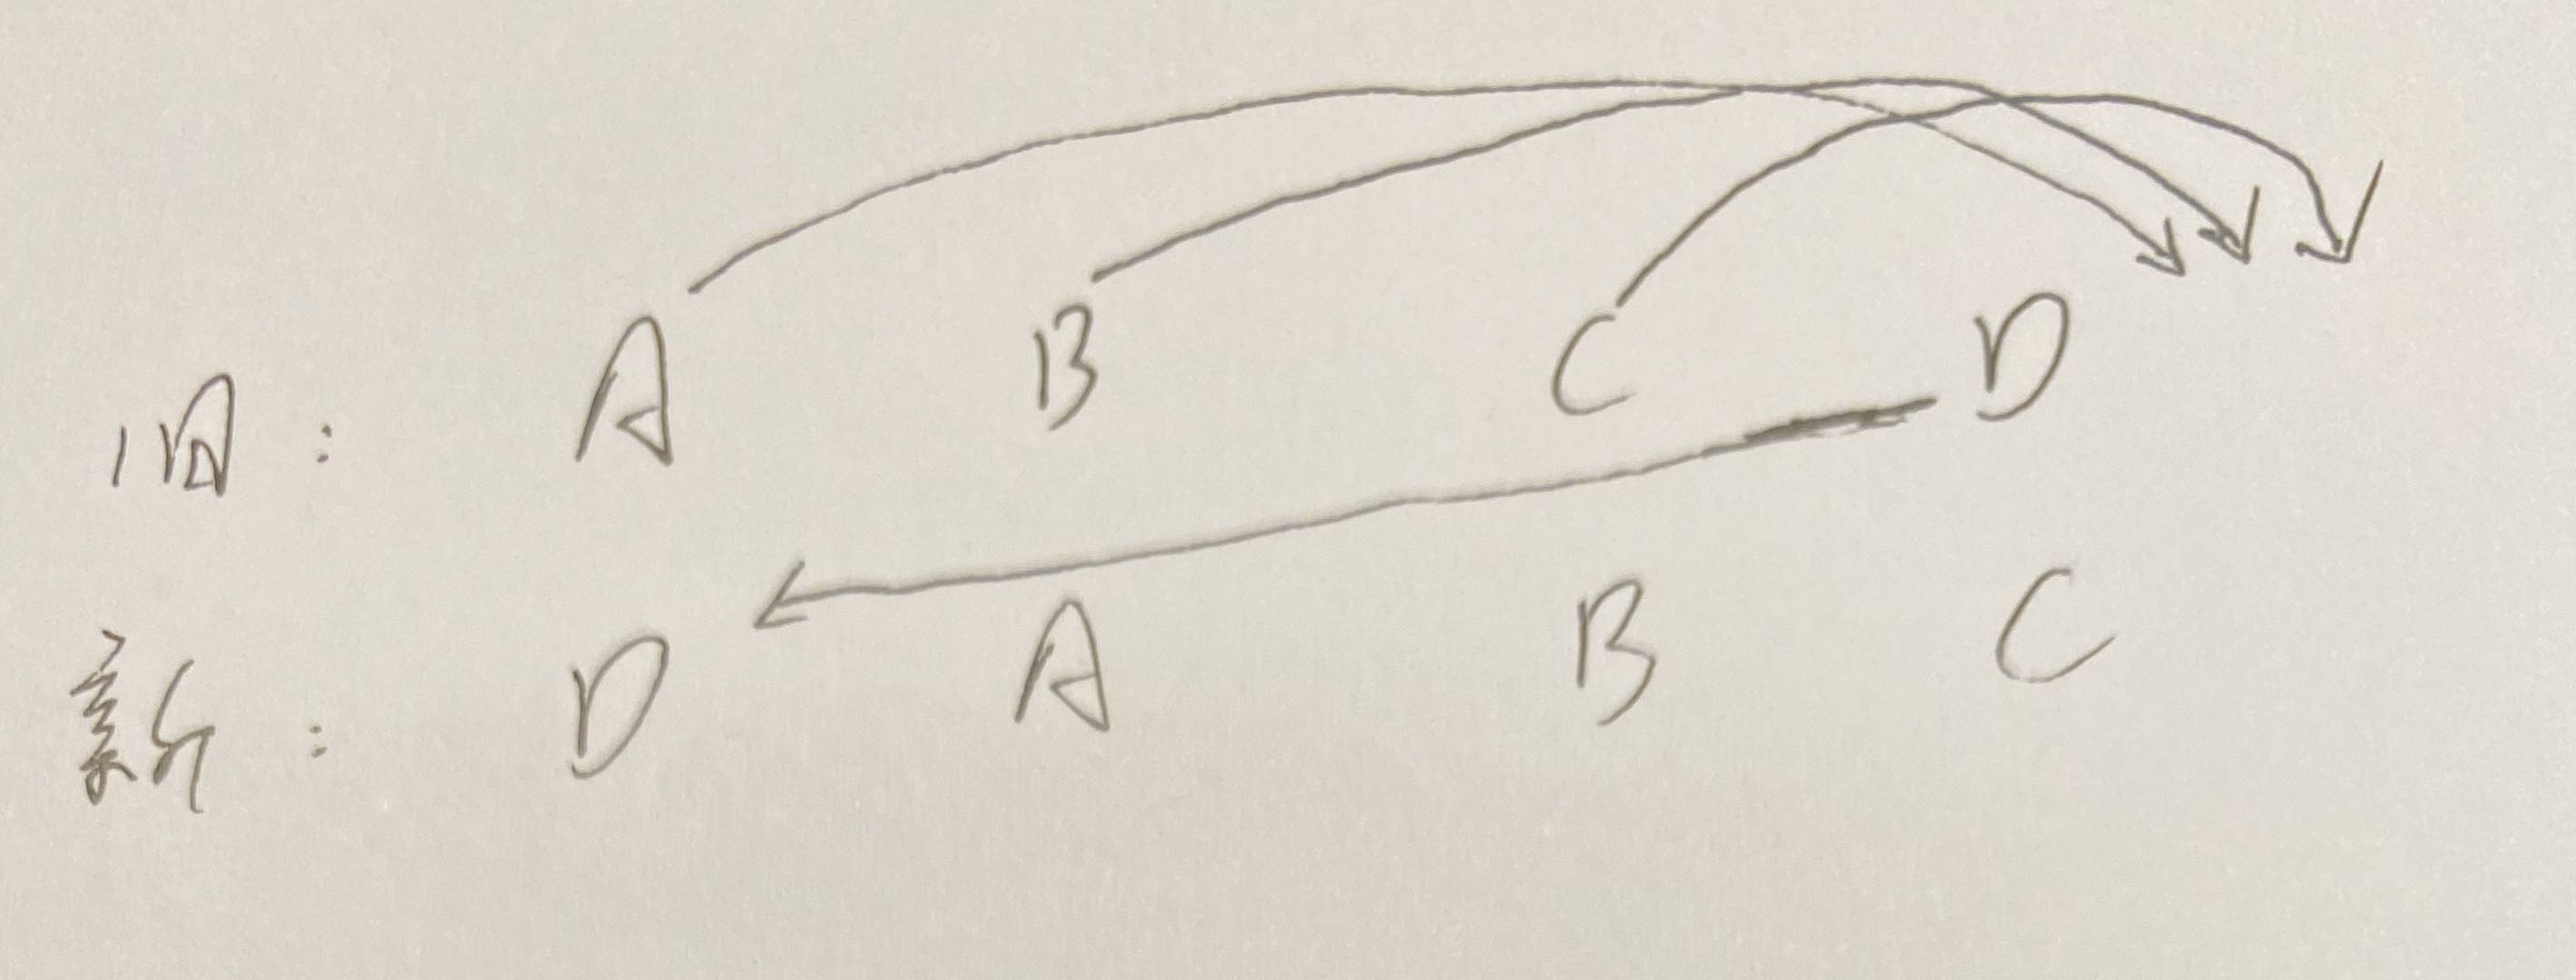 旧： A B C D
新： D A B C